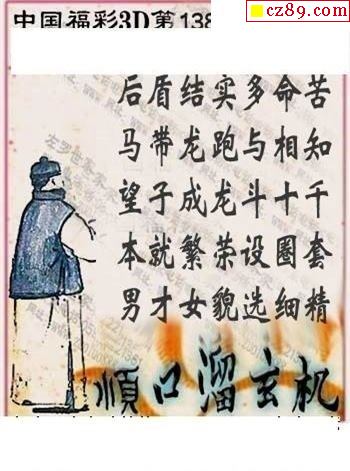 cz89.com
中国福彩3D第138
后盾结实多命苦
马带龙跑与相知
望子成龙斗十千
本就繁荣设圈套
男才女貌选细精
顺口溜玄机